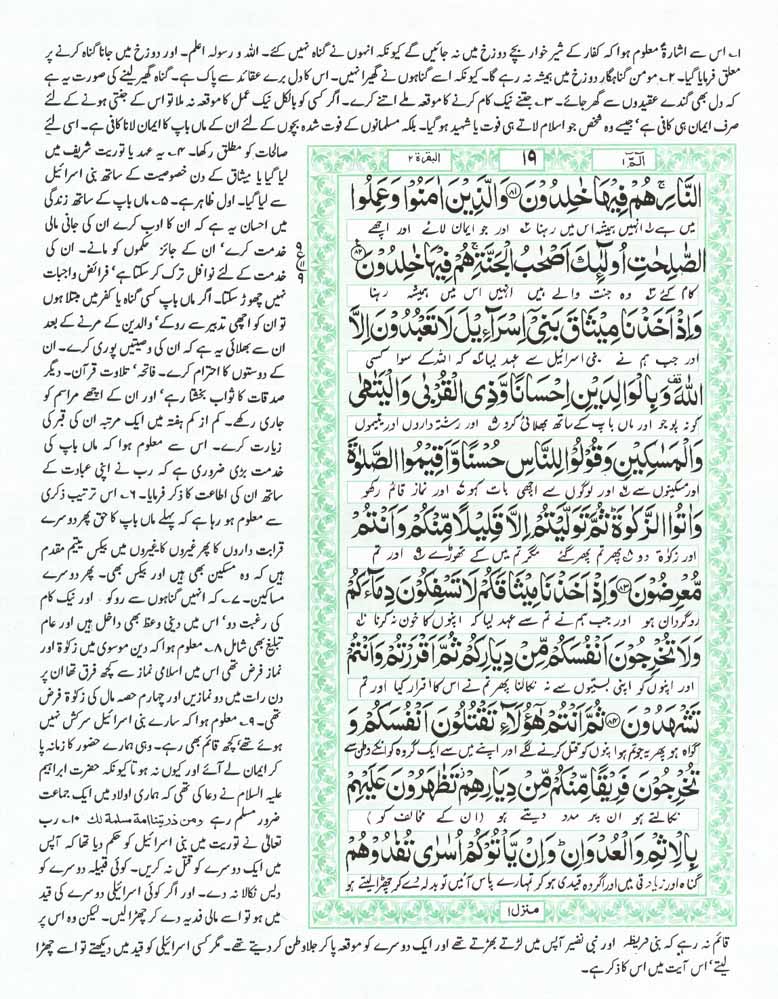 ۱۔ اس سے اشارۃً معلوم ہوا کہ کفار کے شیر خوار بچے دوزخ میں نہ جائیں گے کیونکہ انہوں نے گناہ نہیں کئے۔ اللہ و رسولہ اعلم۔ اور دوزخ میں جانا گناہ کرنے پر
معلق فرمایا گیا۔ ۲۔ مومن گناہگار دوزخ میں ہمیشہ نہ رہے گا۔ کیونکہ اسے گناہوں نے گھیرا نہیں۔ اس کا دل برے عقائد سے پاک ہے۔ گناہ گھیر لینے کی صورت یہ ہے
کہ دل بھی گندے عقیدوں سے گھر جائے۔ ۳۔ جتنے نیک کام کرنے کا موقعہ ملے اتنے کرے۔ اگر کسی کو بالکل نیک عمل کا موقعہ نہ ملا تو اس کے جنتی ہونے کے لئے
صرف ایمان ہی کافی ہے‘ جیسے وہ شخص جو اسلام لاتے ہی فوت یا شہید ہو گیا۔ بلکہ مسلمانوں کے فوت شدہ بچوں کے لئے ان کے ماں باپ کا ایمان لانا کافی ہے۔ اسی لئے
صالحات کو مطلق رکھا۔ ۴۔ یہ عہد یا توریت شریف میں
لیا گیا یا میثاق کے دن خصوصیت کے ساتھ بنی اسرائیل
سے لیا گیا۔ اول ظاہر ہے۔ ۵۔ ماں باپ کے ساتھ زندگی
میں احسان یہ ہے کہ ان کا ادب کرے ان کی جانی مالی
خدمت کرے‘ ان کے جائز حکموں کو مانے۔ ان کی
خدمت کے لئے نوافل ترک کر سکتا ہے‘ فرائض واجبات
نہیں چھوڑ سکتا۔ اگر ماں باپ کسی گناہ یا کفر میں مبتلا ہوں
تو ان کو اچھی تدبیر سے روکے‘ والدین کے مرنے کے بعد
ان سے بھلائی یہ ہے کہ ان کی وصیتیں پوری کرے۔ ان
کے دوستوں کا احترام کرے۔ فاتحہ‘ تلاوت قرآن۔ دیگر
صدقات کا ثواب بخشتا رہے‘ اور ان کے اچھے مراسم کو
جاری رکھے۔ کم از کم ہفتہ میں ایک مرتبہ ان کی قبر کی
زیارت کرے۔ اس سے معلوم ہوا کہ ماں باپ کی
خدمت بڑی ضروری ہے کہ رب نے اپنی عبادت کے
ساتھ ان کی اطاعت کا ذکر فرمایا۔ ۶۔ اس ترتیب ذکری
سے معلوم ہو رہا ہے کہ پہلے ماں باپ کا حق پھر دوسرے
قرابت داروں کا پھر غیروں کا‘ غیروں میں بیکس یتیم مقدم
ہیں کہ وہ مسکین بھی ہیں اور بیکس بھی۔ پھر دوسرے
مساکین۔ ۷۔ کہ انہیں گناہوں سے روکو اور نیک کام
کی رغبت دو‘ اس میں دینی وعظ بھی داخل ہیں اور عام
تبلیغ بھی شامل ۸۔ معلوم ہوا کہ دین موسوی میں زکوٰۃ اور
نماز فرض تھی اس میں اسلامی نماز سے کچھ فرق تھا ان پر
دن رات میں دو نمازیں اور چہارم حصہ مال کی زکوٰۃ فرض
تھی۔ ۹۔ معلوم ہوا کہ سارے بنی اسرائیل سرکش نہیں
ہوئے تھے‘ کچھ قائم بھی رہے۔ وہی ہمارے حضور کا زمانہ پا
کر ایمان لے آئے اور کیوں نہ ہوتا کیونکہ حضرت ابراہیم
علیہ السلام نے دعا کی تھی کہ ہماری اولاد میں ایک جماعت
ضرور مسلم رہے ومن ذریتنا امۃ مسلمۃ لک ۱۰۔ رب
تعالیٰ نے توریت میں بنی اسرائیل کو حکم دیا تھا کہ آپس
میں ایک دوسرے کو قتل نہ کریں۔ کوئی قبیلہ دوسرے کو
دیس نکالا نہ دے۔ اور اگر کوئی اسرائیلی دوسرے کی قید
میں ہو تو اسے مالی فدیہ دے کر چھڑا لیں۔ لیکن وہ اس پر
قائم نہ رہے کہ بنی قریظہ اور بنی نضیر آپس میں لڑتے بھڑتے تھے اور ایک دوسرے کو موقعہ پا کر جلاوطن کر دیتے تھے۔ مگر کسی اسرائیلی کو قید میں دیکھتے تو اسے چھڑا
لیتے‘ اس آیت میں اس کا ذکر ہے۔
الٓمّٓ ۱
۱۹
البقرۃ ۲
النَّارِ ۚ هُمْ فِيْهَا خٰلِدُوْنَ ﴿۸۱﴾ وَالَّذِيْنَ اٰمَنُوْا وَعَمِلُوا
میں ہے انہیں ہمیشہ اس میں رہنا اور جو ایمان لائے اور اچھے
الصّٰلِحٰتِ اُولٰٓئِكَ اَصْحٰبُ الْجَنَّةِ ۚ هُمْ فِيْهَا خٰلِدُوْنَ ﴿۸۲﴾
کام کئے وہ جنت والے ہیں انہیں اس میں ہمیشہ رہنا
وَاِذْ اَخَذْنَا مِيْثَاقَ بَنِيْٓ اِسْرَآءِيْلَ لَا تَعْبُدُوْنَ اِلَّا
اور جب ہم نے بنی اسرائیل سے عہد لیا کہ اللہ کے سوا کسی
اللّٰهَ ۫ وَبِالْوَالِدَيْنِ اِحْسَانًا وَّذِي الْقُرْبٰى وَالْيَتٰمٰى
کو نہ پوجو اور ماں باپ کے ساتھ بھلائی کرو اور رشتہ داروں اور یتیموں
وَالْمَسٰكِيْنِ وَقُوْلُوْا لِلنَّاسِ حُسْنًا وَّاَقِيْمُوا الصَّلٰوةَ
اور مسکینوں سے اور لوگوں سے اچھی بات کہو اور نماز قائم رکھو
وَاٰتُوا الزَّكٰوةَ ؕ ثُمَّ تَوَلَّيْتُمْ اِلَّا قَلِيْلًا مِّنْكُمْ وَاَنْتُمْ
اور زکوٰۃ دو پھر تم پھر گئے مگر تم میں کے تھوڑے اور تم
مُّعْرِضُوْنَ ﴿۸۳﴾ وَاِذْ اَخَذْنَا مِيْثَاقَكُمْ لَا تَسْفِكُوْنَ دِمَآءَكُمْ
روگردان ہو اور جب ہم نے تم سے عہد لیا کہ اپنوں کا خون نہ کرنا
وَلَا تُخْرِجُوْنَ اَنْفُسَكُمْ مِّنْ دِيَارِكُمْ ثُمَّ اَقْرَرْتُمْ وَاَنْتُمْ
اور اپنوں کو اپنی بستیوں سے نہ نکالنا پھر تم نے اس کا اقرار کیا اور تم
تَشْهَدُوْنَ ﴿۸۴﴾ ثُمَّ اَنْتُمْ هٰٓؤُلَآءِ تَقْتُلُوْنَ اَنْفُسَكُمْ وَ
گواہ ہو پھر یہ جو تم ہو اپنوں کو قتل کرنے لگے اور اپنے میں سے ایک گروہ کو انکے وطن سے
تُخْرِجُوْنَ فَرِيْقًا مِّنْكُمْ مِّنْ دِيَارِهِمْ تَظٰهَرُوْنَ عَلَيْهِمْ
نکالتے ہو ان پر مدد دیتے ہو (ان کے مخالف کو)
بِالْاِثْمِ وَالْعُدْوَانِ ؕ وَاِنْ يَّاْتُوْكُمْ اُسٰرٰى تُفٰدُوْهُمْ
گناہ اور زیادتی میں اور اگر وہ قیدی ہو کر تمہارے پاس آئیں تو بدلہ دے کر چھڑا لیتے ہو
منزل ۱